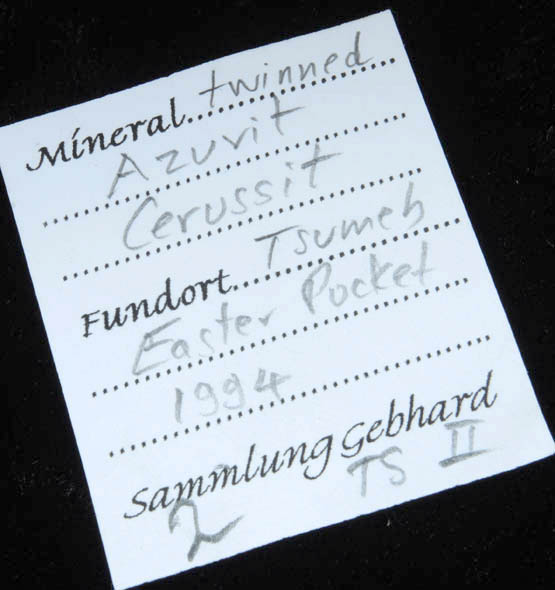 Mineral twinned
Azurit
Cerussit
Fundort Tsumeb
Easter Pocket
1994
Sammlung Gebhard
2 TS II